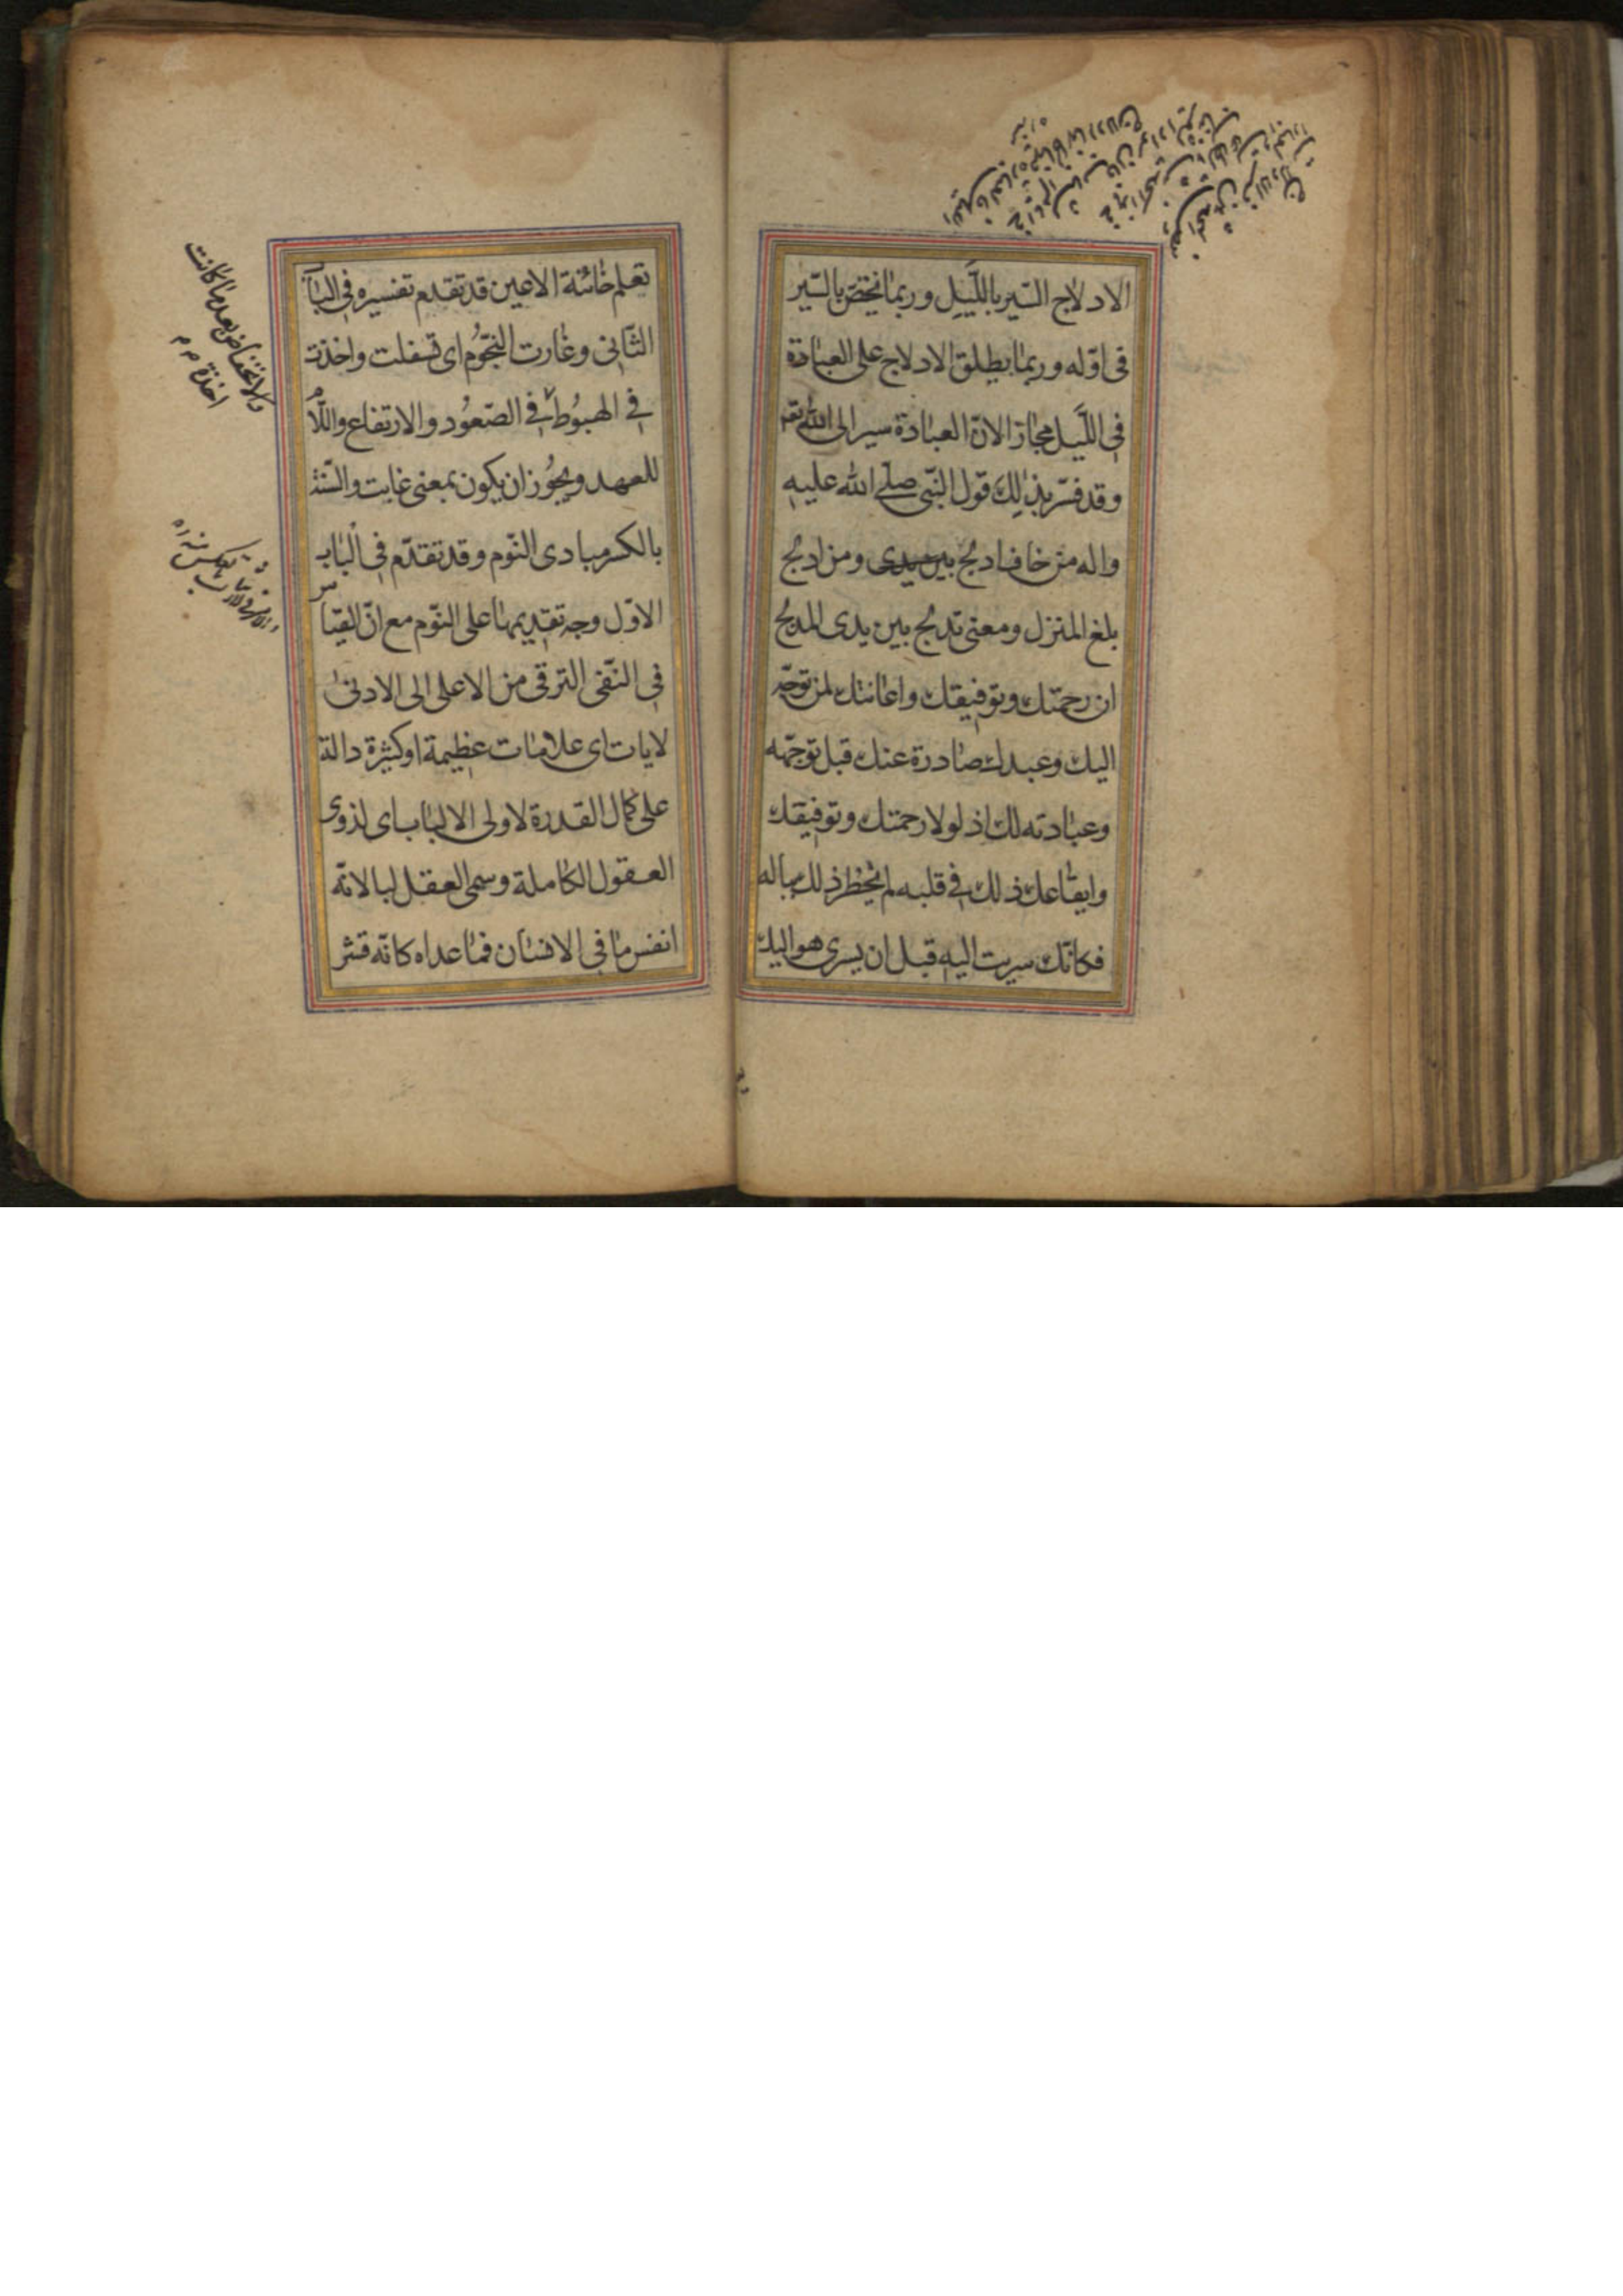 الادلاج السّير باللّيل وربما يختصّ بالسّير
فى اوّله وربما يطلق الادلاج على العبادة
فى اللّيل مجازا لانّ العبادة سير الى الله تعـ
وقد فسّر بذلك قول النّبى صلّى الله عليه
واله من خاف ادلج بين يدى ومن ادلج
بلغ المنزل ومعنى تدلج بين يدى المدلج
ان رحمتك وتوفيقك واعانتك لمن توجّه
اليك وعبدك صادرة عنك قبل توجّهه
وعبادته لك اذ لولا رحمتك وتوفيقك
وايقاعك ذلك فى قلبه لم يخطر ذلك بباله
فكانّك سريت اليه قبل ان يسرى هو اليك
تعلم خائنة الاعين قد تقدم تفسيره فى البا
الثّانى وغارت النّجوم اى تسفلت واخذت
فى الهبوط فى الصّعود والارتفاع واللّام
للعهد ويجوز ان يكون بمعنى غابت والسّنة
بالكسر مبادى النّوم وقد تقدّم فى الباب
الاوّل وجه تقديمها على النّوم مع انّ القياس
فى النّفى الترقى من الاعلى الى الادنى
لايات اى علامات عظيمة او كثيرة دالة
على كمال القدرة لاولى الالباب اى لذوى
العقول الكاملة وسمى العقل لبا لانّه
انفس ما فى الانسان فما عداه كانّه قشر
والانخفاض بعد ما كانت
اخذة م م